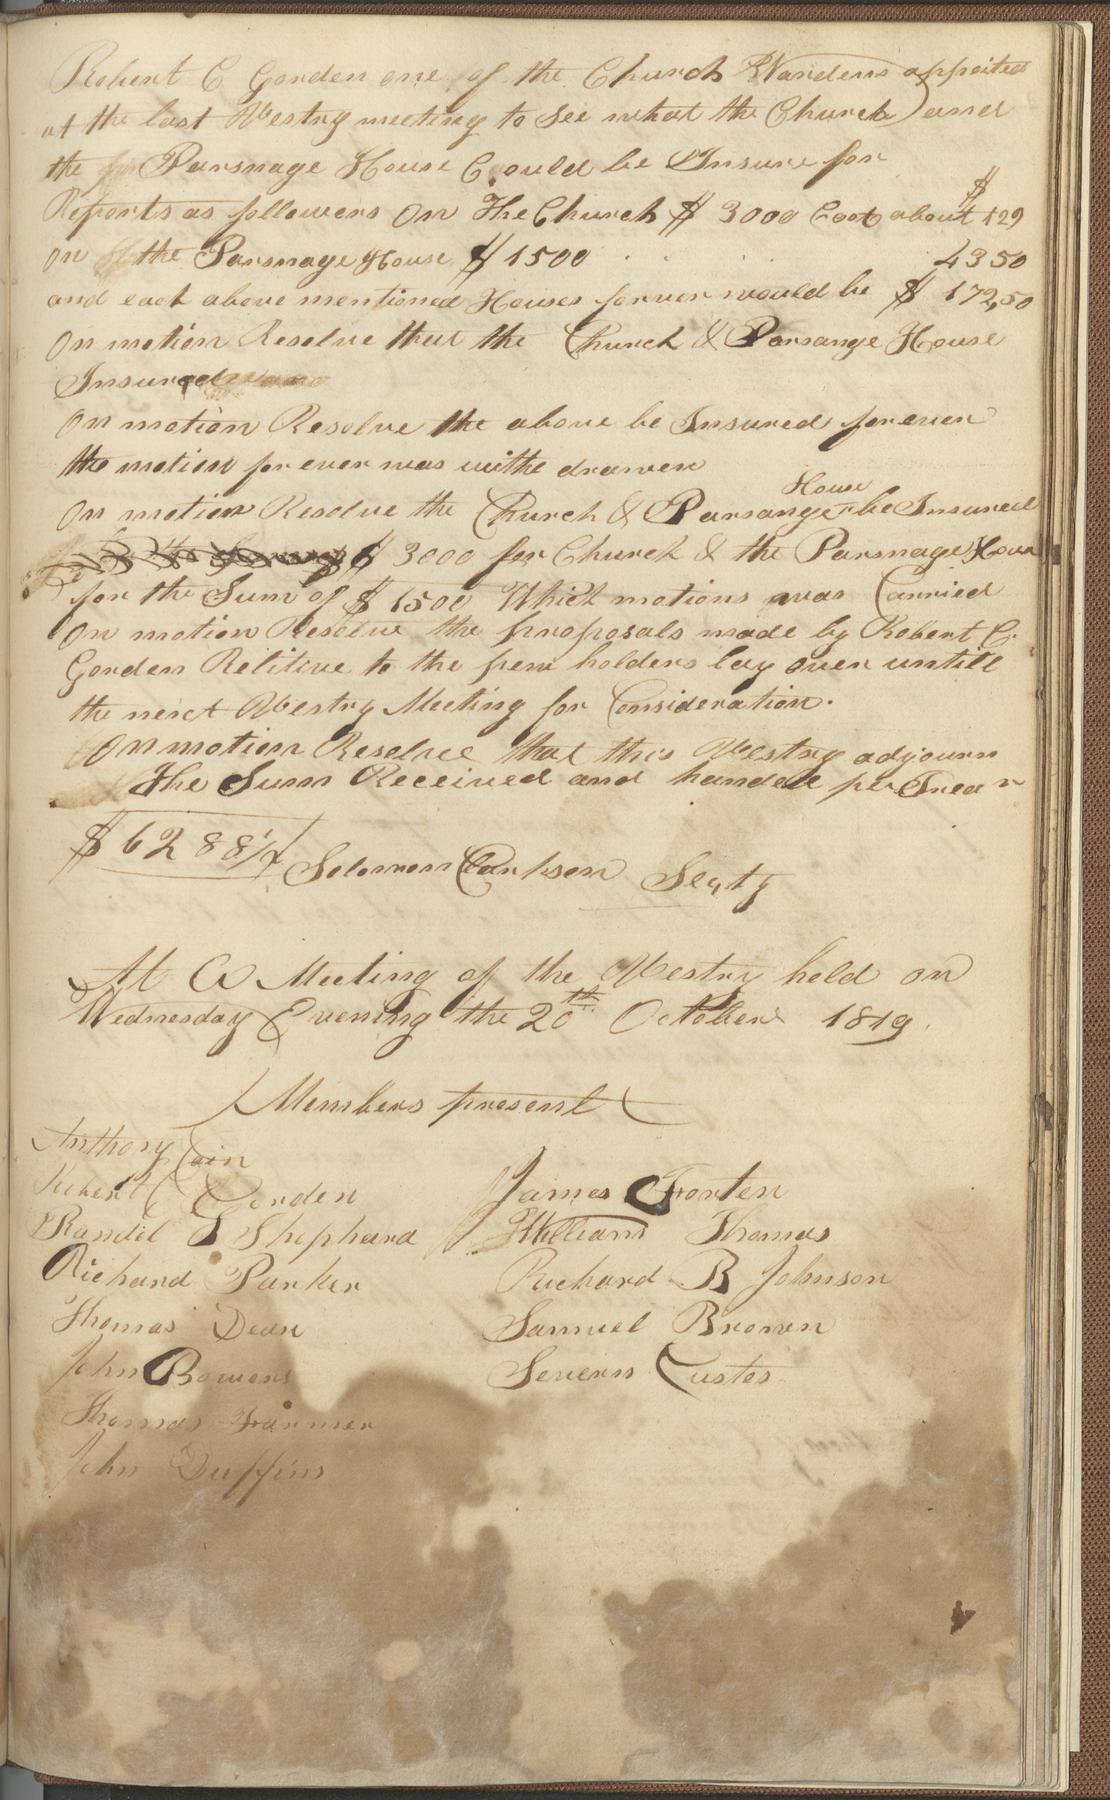 Robert C Gorden one of the Church Wardens appoited
at the last Vestry meeting to see what the Church and
the Parsnage House Could be Insure for
Reports as followers On The Church $ 3000 Cost about $ 129
on the Parsnage House $ 1500 4350
and each above mentioned Houses forever would be $ 172,50
On motion Resolve that the Church & Parsange House
Insured
On motion Resolve the above be Insured forever
the motion for ever was withe drawen
On motion Resolve the Church & Parsange House be Insured
$ 3000 for Church & the Parsnage House
for the Sum of $ 1500 Which motions was Carried
On motion Resolve the proposals made by Robert C.
Gorden Relitive to the pew holders lay over untill
the next Vestry Meeting for Consideration.
On motion Resolve that this Vestry adjourn
The Sum Received and handed per Trear
$ 62 88½ Solomon Clarkson Secty
At A Meeting of the Vestry held on
Wednesday Evening the 20th October 1819.
Members present
Anthony Cain
Robert C Gorden James Forten
Randel Shephard William Thomas
Richard Parker Richard B Johnson
Thomas Dean Samuel Brown
John Bowers Severn Custos
Thomas Farmer
John Duffins